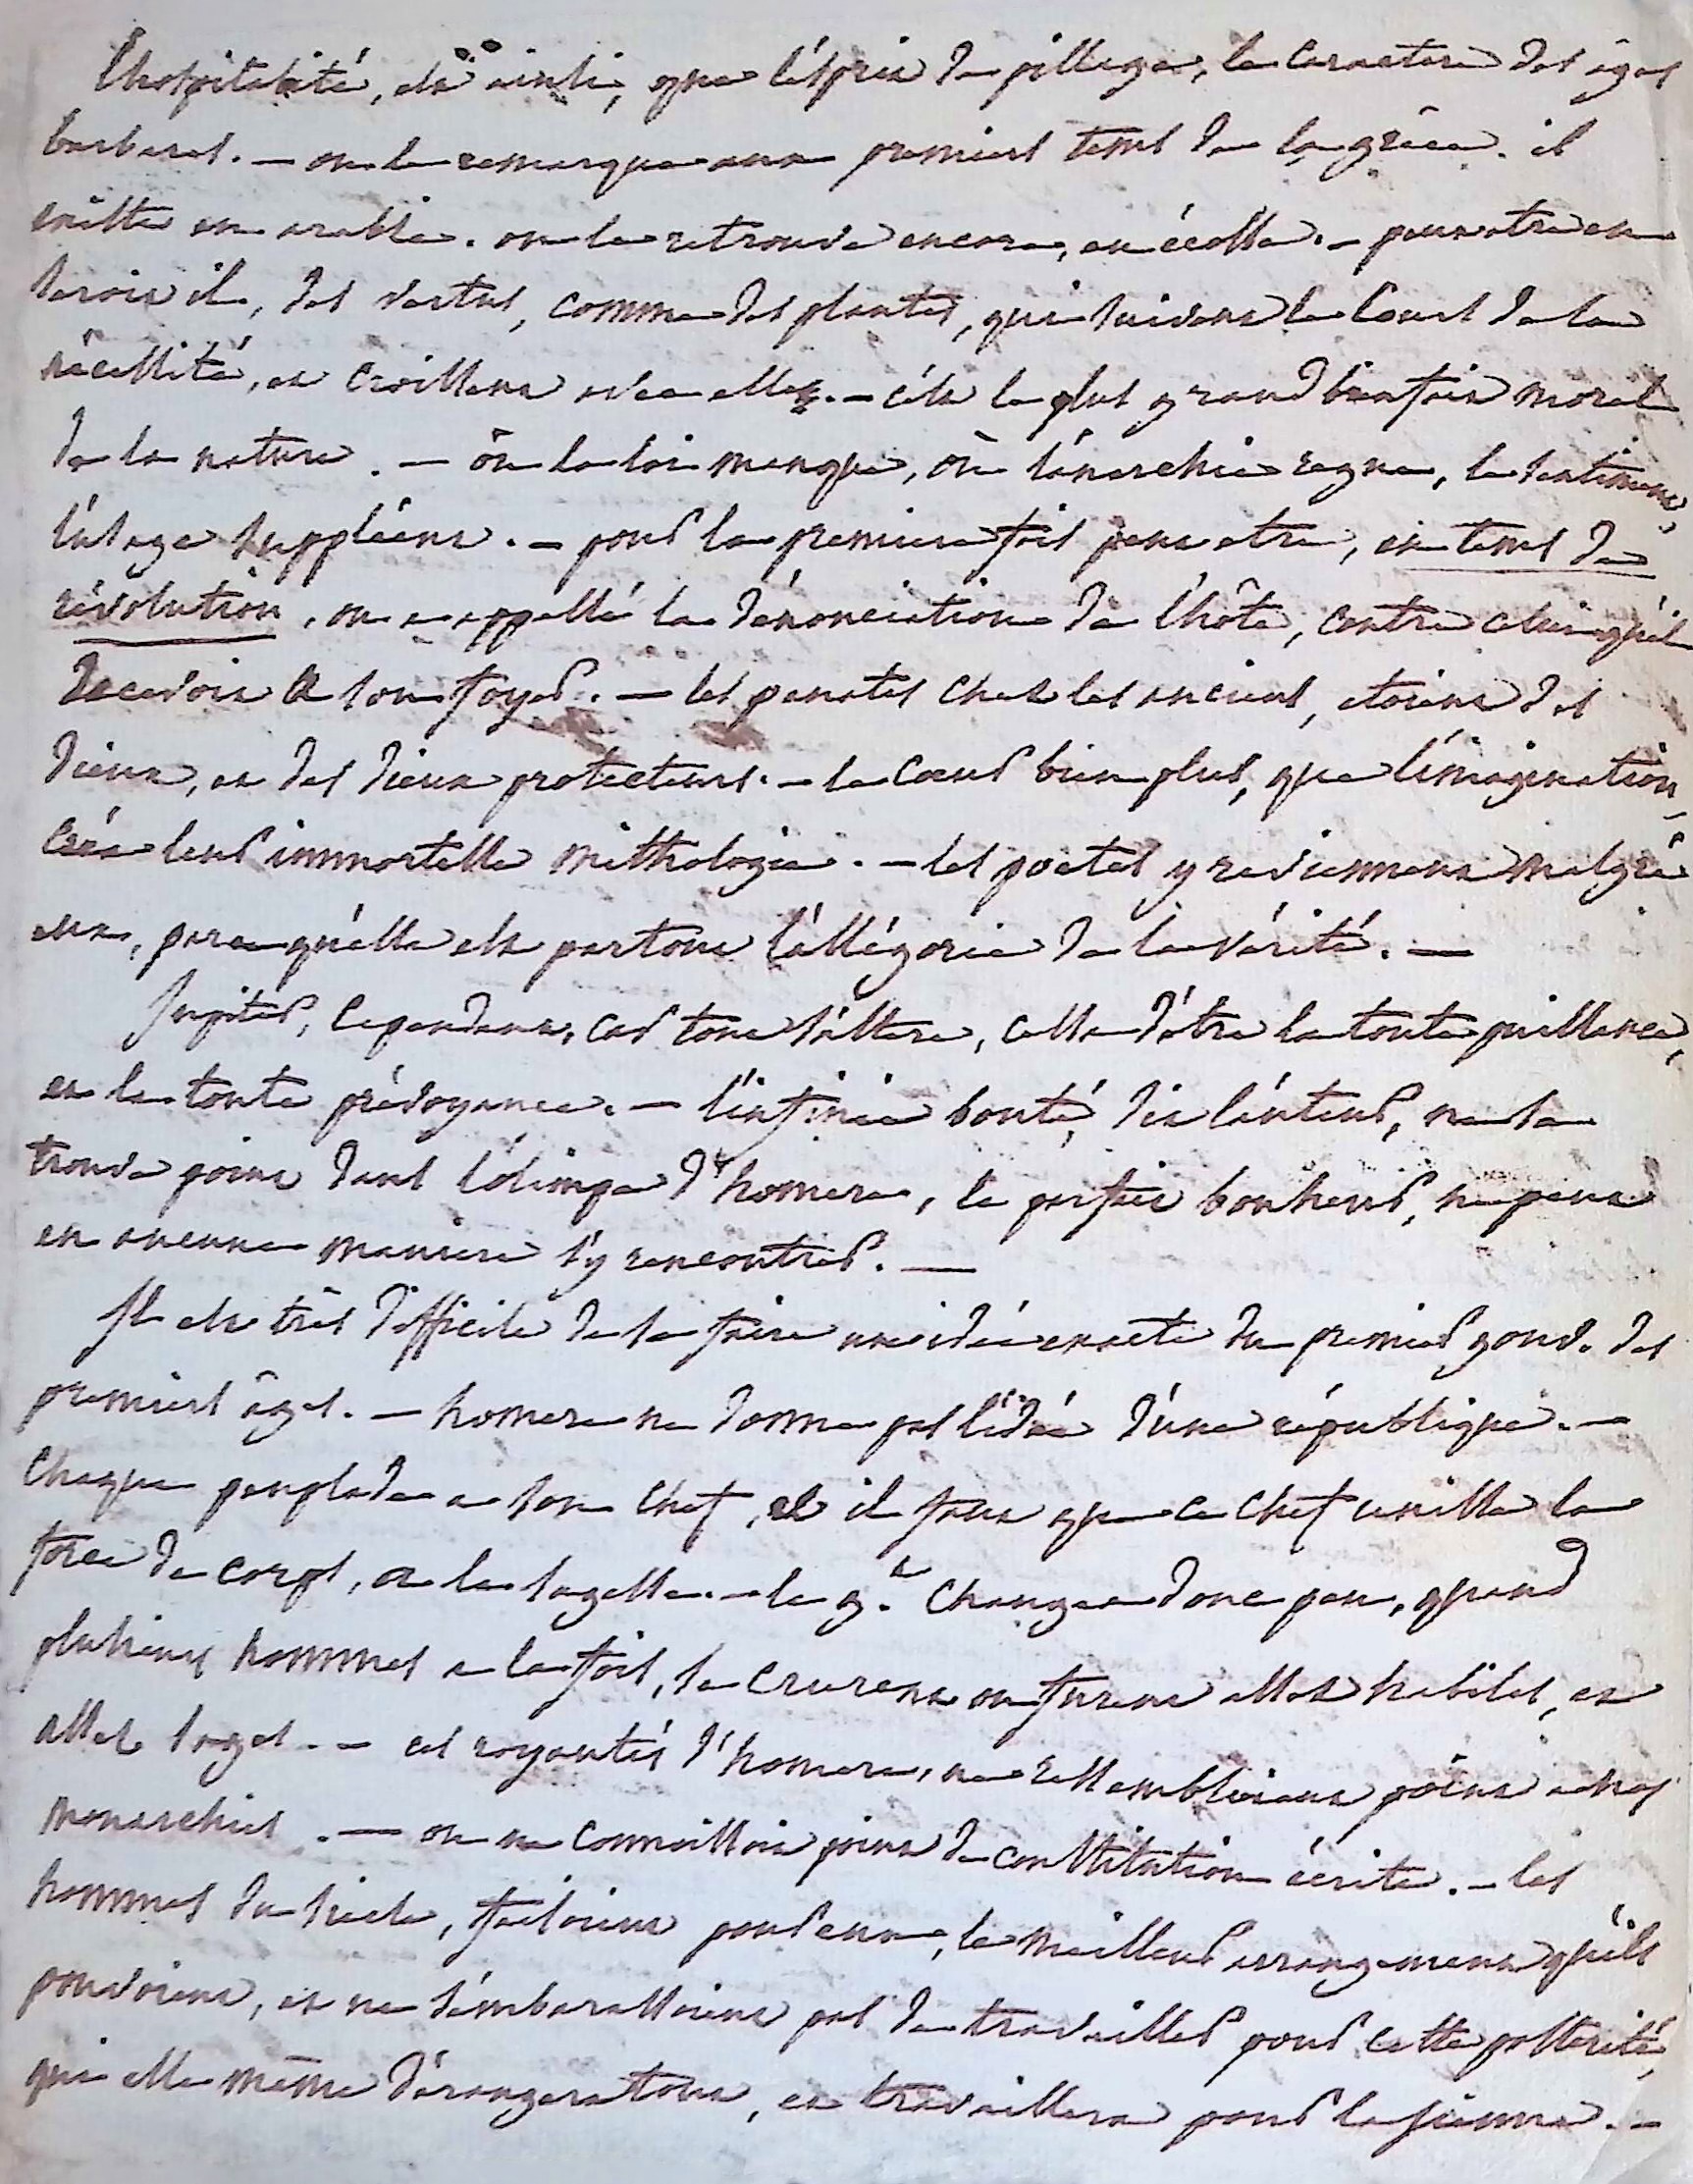 l'hospitalité, est ainsi, que l'esprit de pillage, le caractere des âges
barbares. — on le remarque aux premiers tems de la grèce. il
existe en arabie. on le retrouve encore, en écosse. — peut etre en
seroit il, des vertus, comme des plantes, qui suivent le cours de la
nécessité, et croissent avec elle. — c'est le plus grand bienfait moral
de la nature. — où la loi manque, où l'anarchie regne, le sentiment,
l'usage suppléent. — pour la premiere fois peut etre, en tems de
révolution, on a appellé la dénonciation de l'hôte, contre celui qu'il
recevoit à son foyer. — les penates chez les anciens, etoient des
dieux, et des dieux protecteurs. — le cœur bien plus, que l'imagination,
créa leur immortelle mithologie. — les poetes y reviennent malgré
eux, parce qu'elle est partout l'allégorie de la vérité. —
Jupiter, cependant, car tout s'altere, cesse d'etre la toute puissance,
et la toute prévoyance. — l'infinie bonté, dit l'auteur, ne se
trouve point dans l'olimpe d'homere, le parfait bonheur, ne peut
en aucune maniere s'y rencontrer. —
Il est très difficile de se faire une idée exacte du premier gouv. des
premiers âges. — homere ne donne pas l'idée d'une république. —
Chaque peuplade a son chef, et il faut que ce chef unisse la
force de corps, et la sagesse. — le g.t changea donc peu, quand
plusieurs hommes a la fois, se crurent ou furent assez habiles, et
assez sages. — ces royautés d'homere, ne ressembloient point a nos
monarchies. — on ne connoissoit point de constitution écrite. — les
hommes du siecle, faisoient pour eux, le meilleur arrangement qu'ils
pouvoient, et ne s'embarassoient pas de travailler pour cette postérité,
qui elle même dérangera tout, et travaillera pour la sienne. —